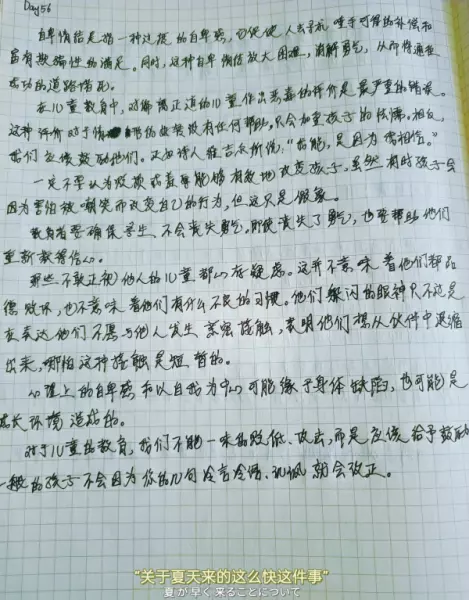 Day56
自卑情结是指一种过度的自卑感,它促使人去寻求唾手可得的补偿和
富有欺骗性的满足。同时,这种自卑情结放大困难,消解勇气,从而将通往
成功的道路堵死。
在儿童教育中,对偏离正道的儿童作出恶毒的评价是最严重的错误。
这种评价对于情的改善没有任何帮助,只会加重孩子的怯懦。相反,
我们应该鼓励他们。正如诗人维吉尔所说:“能,是因为相信。”
一定不要认为贬损或羞辱能够有效地改变孩子,虽然有时孩子会
因为害怕被嘲笑而改变自己的行为,但这只是假象。
教育者要确保学生不会丧失勇气,即使丧失了勇气,也要帮助他们
重新获得信心。
那些不敢正视他人的儿童都心存疑虑。这并不意味着他们都品
德败坏,也不意味着他们有什么不良的习惯。他们躲闪的眼神只不过是
在表达他们不愿与他人发生紧密接触,表明他们想从伙伴中退缩
出来,哪怕这种接触是短暂的。
心理上的自卑感和以自我为中心可能缘于身体缺陷,也可能是
成长环境造成的。
对于儿童的教育,我们不能一味的贬低、攻击,而是应该给予鼓励
一般的孩子不会因为你的几句冷言冷语、讥讽就会改正。
“关于夏天来的这么快这件事”
夏が早く来ることについて